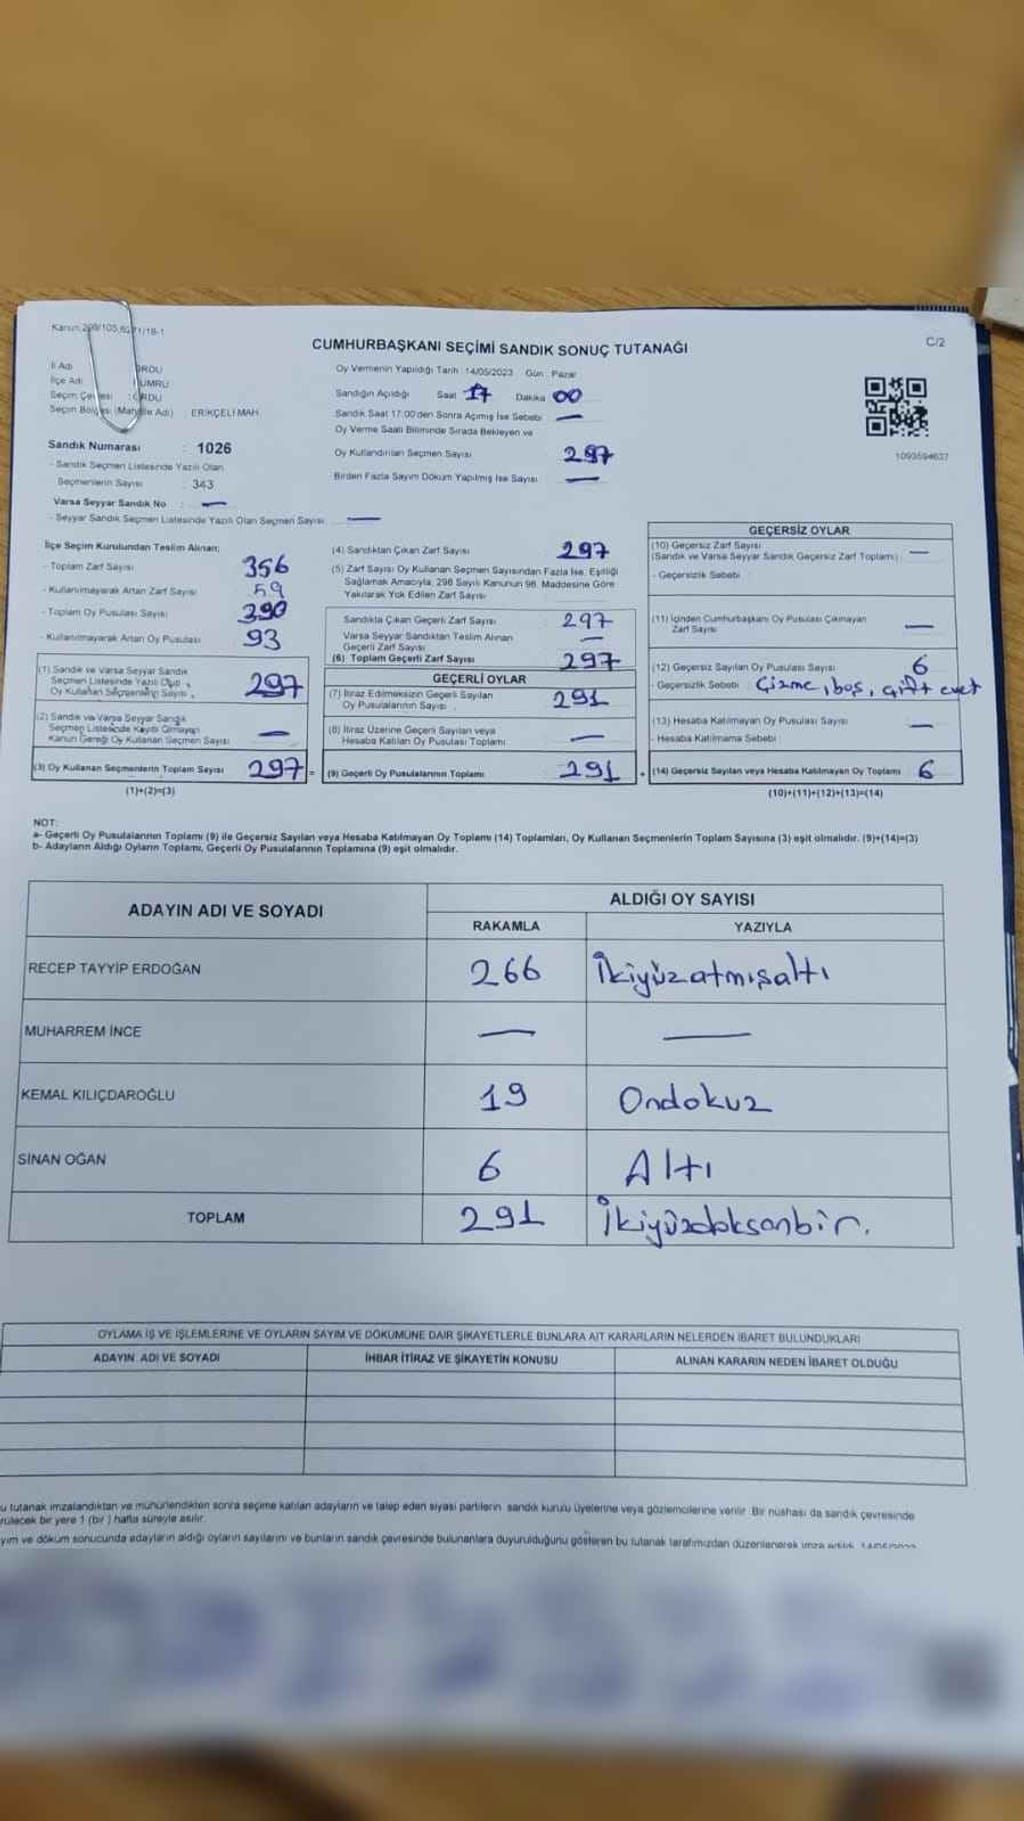 CUMHURBAŞKANI SEÇİMİ SANDIK SONUÇ TUTANAĞI
C/2
İl Adı ORDU
İlçe Adı KUMRU
Seçim Çevresi : ORDU
Seçim Bölgesi (Mahalle Adı) : ERİKÇELİ MAH.
Sandık Numarası : 1026
- Sandık Seçmen Listesinde Yazılı Olan
Seçmenlerin Sayısı : 343
Varsa Seyyar Sandık No : —
- Seyyar Sandık Seçmen Listesinde Yazılı Olan Seçmen Sayısı —
Oy Vermenin Yapıldığı Tarih :14/05/2023 Gün : Pazar
Sandığın Açıldığı Saat 17 Dakika 00
Sandık Saat 17:00'den Sonra Açılmış İse Sebebi —
Oy Verme Saati Bitiminde Sırada Bekleyen ve
Oy Kullandırılan Seçmen Sayısı 297
Birden Fazla Sayım Döküm Yapılmış İse Sayısı —
1093594637
İlçe Seçim Kurulundan Teslim Alınan;
- Toplam Zarf Sayısı 356
- Kullanılmayarak Artan Zarf Sayısı 59
- Toplam Oy Pusulası Sayısı 390
- Kullanılmayarak Artan Oy Pusulası 93
(1) Sandık ve Varsa Seyyar Sandık
Seçmen Listesinde Yazılı Olup
Oy Kullanan Seçmenlerin Sayısı 297
(2) Sandık ve Varsa Seyyar Sandık
Seçmen Listesinde Kayıtlı Olmayan
Kanun Gereği Oy Kullanan Seçmen Sayısı —
(3) Oy Kullanan Seçmenlerin Toplam Sayısı 297 =
(1)+(2)=(3)
(4) Sandıktan Çıkan Zarf Sayısı 297
(5) Zarf Sayısı Oy Kullanan Seçmen Sayısından Fazla İse, Eşitliği
Sağlamak Amacıyla, 298 Sayılı Kanunun 98. Maddesine Göre
Yakılarak Yok Edilen Zarf Sayısı
Sandıkta Çıkan Geçerli Zarf Sayısı 297
Varsa Seyyar Sandıktan Teslim Alınan
Geçerli Zarf Sayısı —
(6) Toplam Geçerli Zarf Sayısı 297
GEÇERLİ OYLAR
(7) İtiraz Edilmeksizin Geçerli Sayılan
Oy Pusulalarının Sayısı 291
(8) İtiraz Üzerine Geçerli Sayılan veya
Hesaba Katılan Oy Pusulası Toplamı —
(9) Geçerli Oy Pusulalarının Toplamı 291 +
GEÇERSİZ OYLAR
(10) Geçersiz Zarf Sayısı
(Sandık ve Varsa Seyyar Sandık Geçersiz Zarf Toplamı) —
- Geçersizlik Sebebi
(11) İçinden Cumhurbaşkanı Oy Pusulası Çıkmayan
Zarf Sayısı —
(12) Geçersiz Sayılan Oy Pusulası Sayısı 6
- Geçersizlik Sebebi : Çizme, boş, çift evet
(13) Hesaba Katılmayan Oy Pusulası Sayısı —
- Hesaba Katılmama Sebebi :
(14) Geçersiz Sayılan veya Hesaba Katılmayan Oy Toplamı 6
(10)+(11)+(12)+(13)=(14)
NOT:
a- Geçerli Oy Pusulalarının Toplamı (9) ile Geçersiz Sayılan veya Hesaba Katılmayan Oy Toplamı (14) Toplamları, Oy Kullanan Seçmenlerin Toplam Sayısına (3) eşit olmalıdır. (9)+(14)=(3)
b- Adayların Aldığı Oyların Toplamı, Geçerli Oy Pusulalarının Toplamına (9) eşit olmalıdır.
ADAYIN ADI VE SOYADI ALDIĞI OY SAYISI
RAKAMLA YAZIYLA
RECEP TAYYİP ERDOĞAN 266 İkiyüzatmışaltı
MUHARREM İNCE — —
KEMAL KILIÇDAROĞLU 19 Ondokuz
SİNAN OĞAN 6 Altı
TOPLAM 291 İkiyüzdoksanbir.
OYLAMA İŞ VE İŞLEMLERİNE VE OYLARIN SAYIM VE DÖKÜMÜNE DAİR ŞİKAYETLERLE BUNLARA AİT KARARLARIN NELERDEN İBARET BULUNDUKLARI
ADAYIN ADI VE SOYADI İHBAR İTİRAZ VE ŞİKAYETİN KONUSU ALINAN KARARIN NEDEN İBARET OLDUĞU
u tutanak imzalandıktan ve mühürlendikten sonra seçime katılan adayların ve talep eden siyasi partilerin sandık kurulu üyelerine veya gözlemcilerine verilir. Bir nüshası da sandık çevresinde
rülecek bir yere 1 (bir ) hafta süreyle asılır.
yım ve döküm sonucunda adayların aldığı oyların sayılarını ve bunların sandık çevresinde bulunanlara duyurulduğunu gösteren bu tutanak tarafımızdan düzenlenerek imza